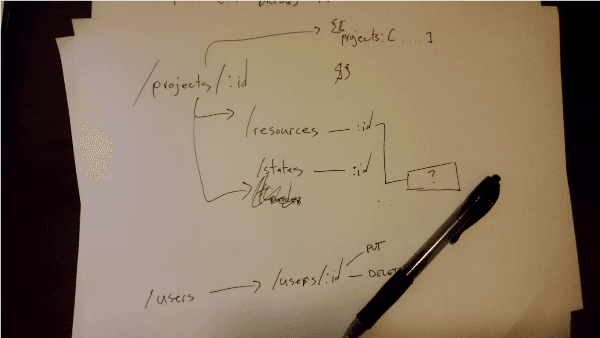 {{
projects: [ .... ]
/projects/:id
}}
/resources — :id
/states — :id
?
PUT
/users → /users/:id — DELET